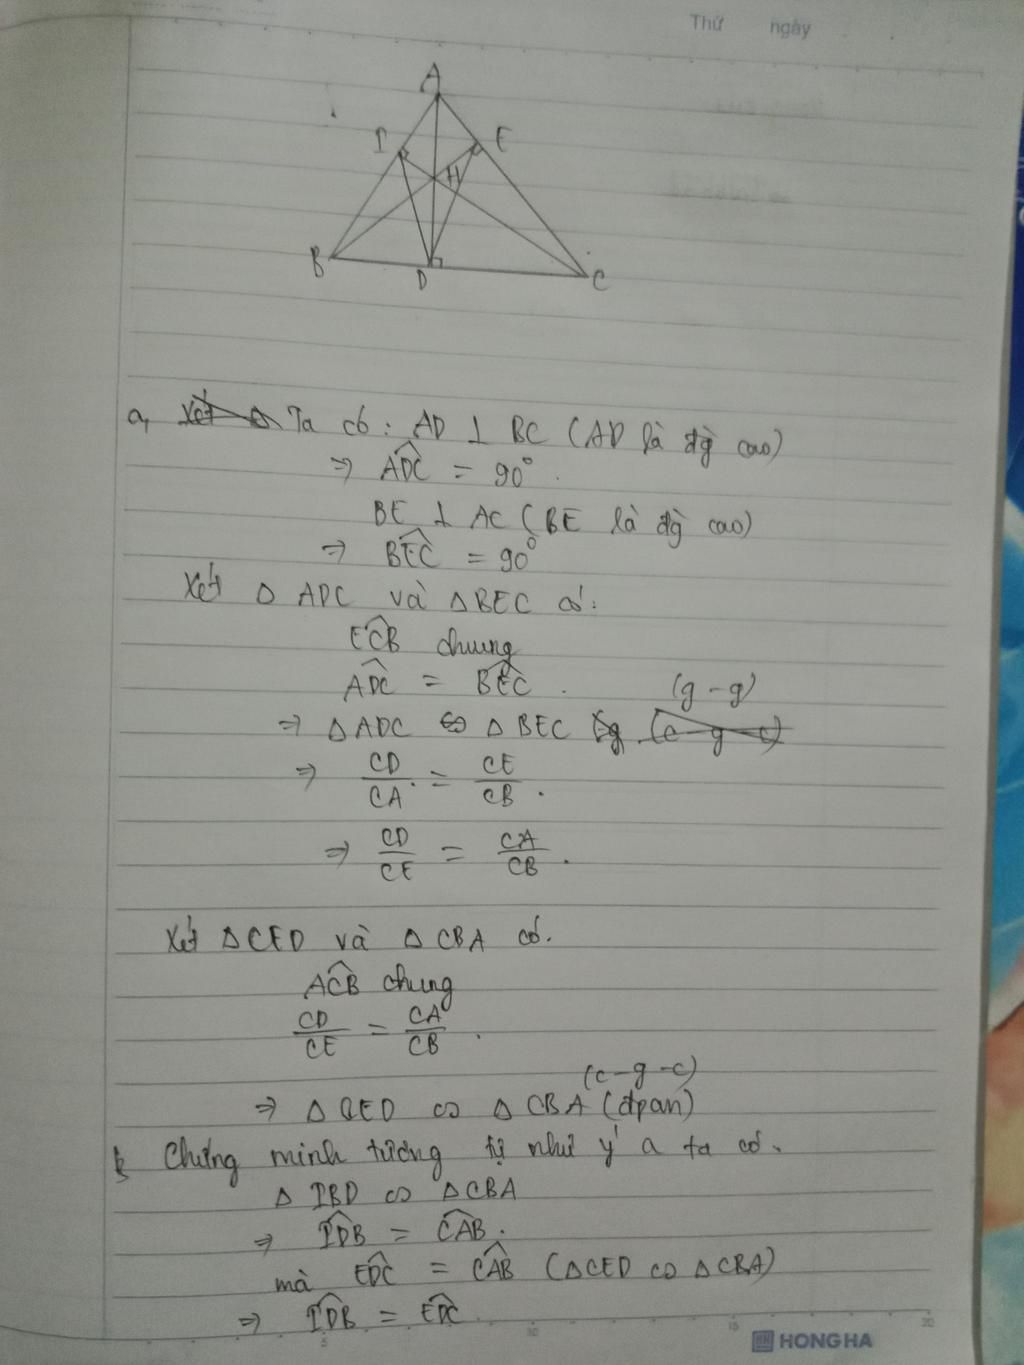 Thứ ngày
A
I E
H
B D C
a, Xét Δ Ta có: AD ⊥ BC (AD là đg̀ cao)
⇒ ADC = 90°.
BE ⊥ AC (BE là đg̀ cao)
⇒ BEC = 90°
Xét Δ ADC và Δ BEC có:
ECB chung
ADC = BEC.
(g-g)
⇒ Δ ADC ∽ Δ BEC (g (c g c)
⇒ CD/CA = CE/CB.
⇒ CD/CE = CA/CB.
Xét Δ CED và Δ CBA có.
ACB chung
CD/CE = CA/CB.
(c-g-c)
⇒ Δ CED ∽ Δ CBA (đpcm)
b, Chứng minh tương tự như ý a ta có.
Δ IBD ∽ Δ CBA
⇒ IDB = CAB.
mà EDC = CAB (Δ CED ∽ Δ CBA)
⇒ IDB = EDC
5 10 15 20
HONG HA